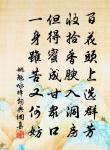 百花頭上選群芳
收拾香腴入洞房
但得蜜成甘衆口
一身雖苦又何妨
姚勉咏蜂